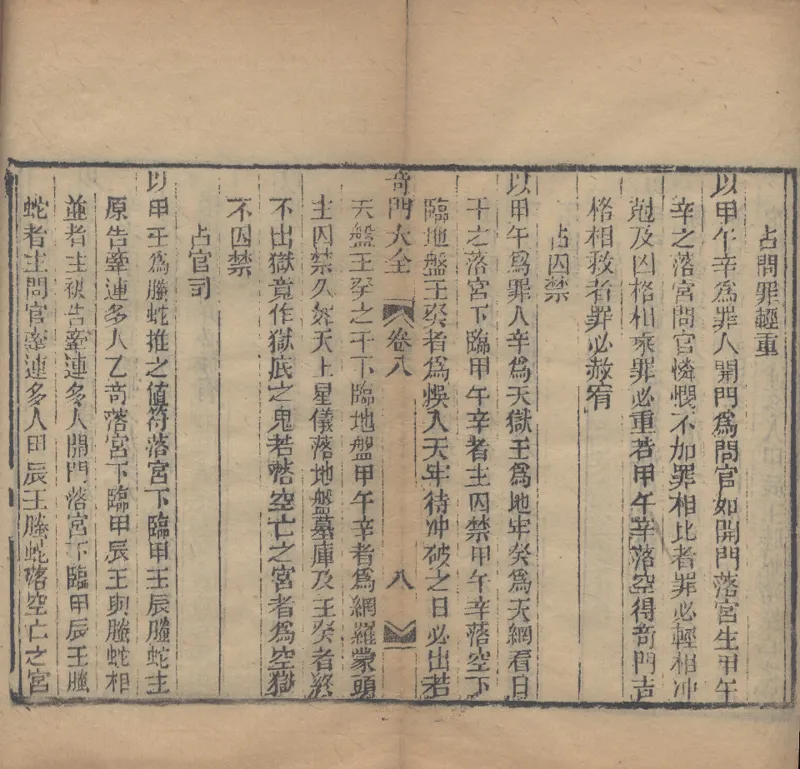 占問罪輕重
以甲午辛為罪人開門為問官如開門落宮生甲午
辛之落宮問官憐憫不加罪相比者罪必輕相冲
尅及凶格相乘罪必重若甲午辛落空得奇門吉
格相救者罪必赦宥
占囚禁
以甲午為罪人辛為天獄壬為地牢癸為天網看日
干之落宮下臨甲午辛者主囚禁甲午辛落空下
臨地盤壬癸者為悞入天牢待冲破之日必出若
奇門大全 卷八 八
天盤壬癸之干下臨地盤甲午辛者為網羅蒙頭
主囚禁久如天上星儀落地盤墓庫及壬癸者終
不出獄竟作獄底之鬼若落空亡之宮者為空獄
不囚禁
占官司
以甲壬為螣蛇推之值符落宮下臨甲壬辰螣蛇主
原告牽連多人乙奇落宮下臨甲辰壬與螣蛇相
並者主被告牽連多人開門落宮下臨甲辰壬螣
蛇者主問官牽連多人甲辰壬螣蛇落空亡之宮